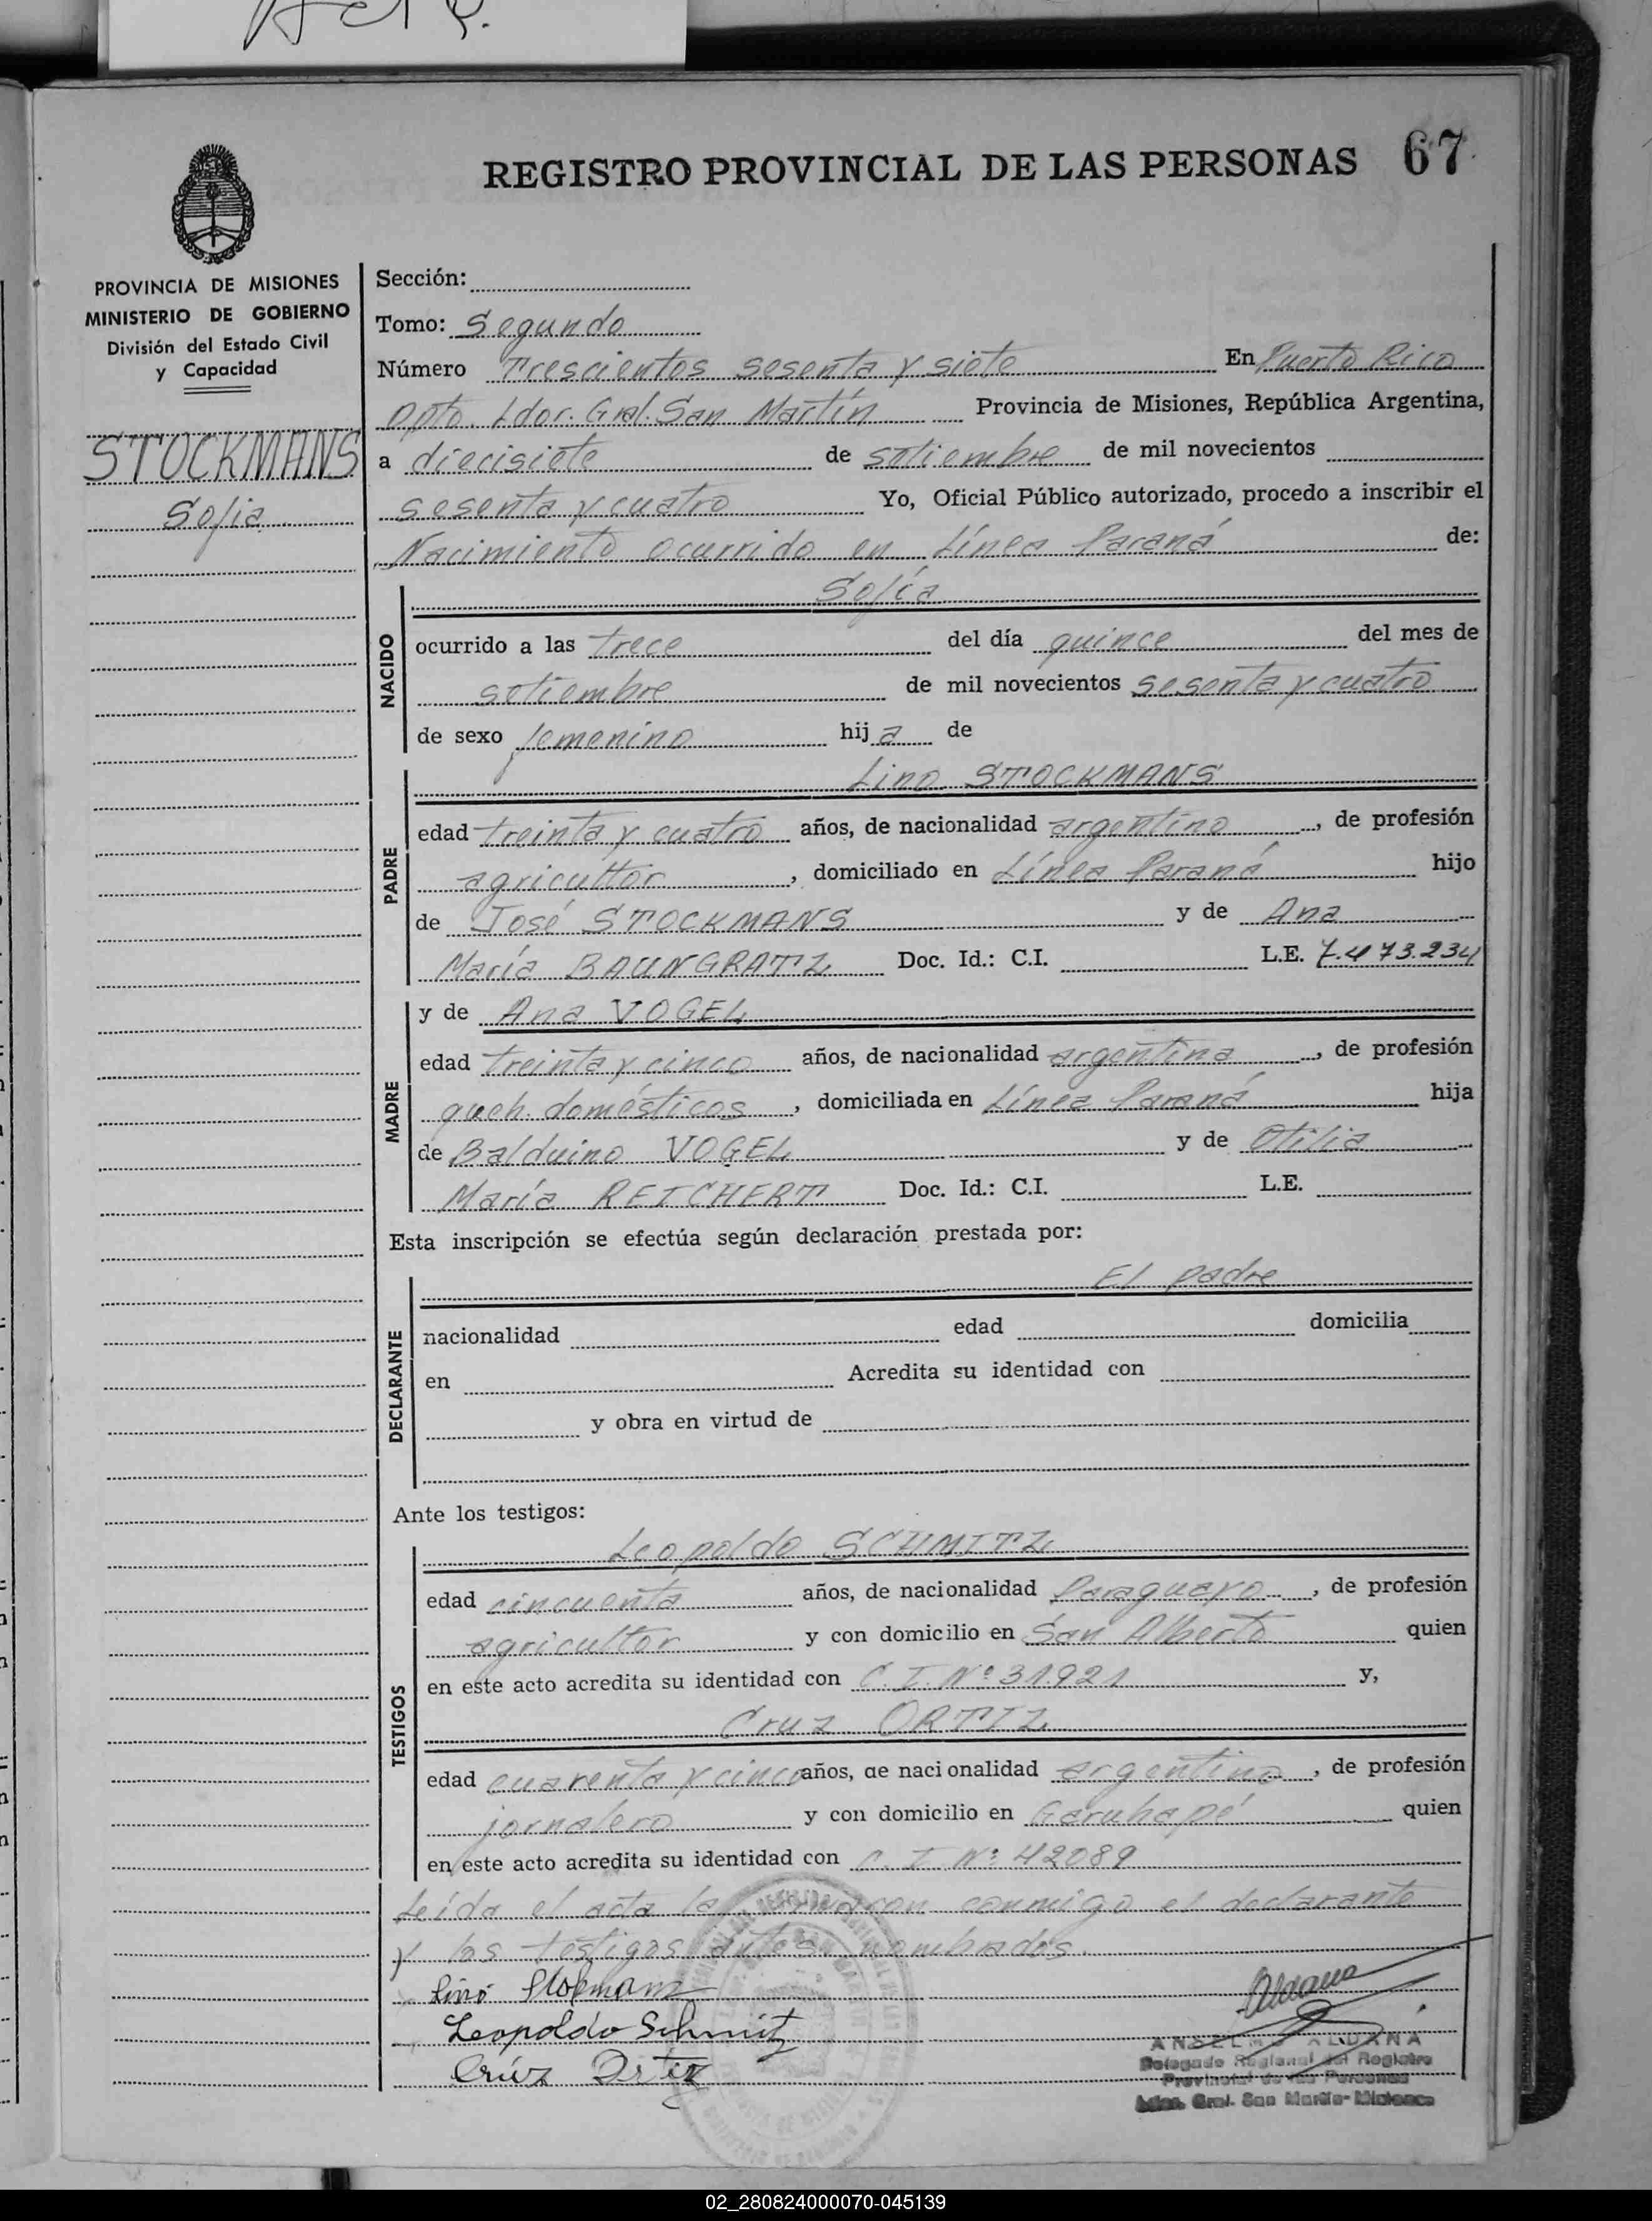 REGISTRO PROVINCIAL DE LAS PERSONAS 67
PROVINCIA DE MISIONES
MINISTERIO DE GOBIERNO
División del Estado Civil
y Capacidad
STOCKMANS
Sofia
Sección:
Tomo: Segundo
Número Trescientos sesenta y siete En Puerto Rico
Dpto. Ldor. Gral. San Martín Provincia de Misiones, República Argentina,
a diecisiete de setiembre de mil novecientos
sesenta y cuatro Yo, Oficial Público autorizado, procedo a inscribir el
Nacimiento ocurrido en Línea Paraná de:
NACIDO
Sofía
ocurrido a las trece del día quince del mes de
setiembre de mil novecientos sesenta y cuatro
de sexo femenino hija de
PADRE
Lino STOCKMANS
edad treinta y cuatro años, de nacionalidad argentino, de profesión
agricultor, domiciliado en Línea Paraná hijo
de José STOCKMANS y de Ana
María BAUNGRATZ Doc. Id.: C.I. L.E. 7.473.234
MADRE
y de Ana VOGEL
edad treinta y cinco años, de nacionalidad argentina, de profesión
queh. domésticos, domiciliada en Línea Paraná hija
de Balduino VOGEL y de Otilia
María REICHERT Doc. Id.: C.I. L.E.
Esta inscripción se efectúa según declaración prestada por:
DECLARANTE
El padre
nacionalidad edad domicilia
en Acredita su identidad con
y obra en virtud de
Ante los testigos:
TESTIGOS
Leopoldo SCHMITZ
edad cincuenta años, de nacionalidad Paraguayo, de profesión
agricultor y con domicilio en San Alberto quien
en este acto acredita su identidad con C. I. Nº 31.921 y,
Cruz ORTIZ
edad cuarenta y cinco años, de nacionalidad argentino, de profesión
jornalero y con domicilio en Garuhapé quien
en este acto acredita su identidad con C. I. Nº 42089
Leída el acta la firmaron conmigo el declarante
y los testigos antes nombrados.
Lino Stokmans
Leopoldo Schmitz
Crúz Ortiz
Aldana
ANSELMO ALDANA
Delegado Regional del Registro
Provincial de las Personas
Ldor. Gral. San Martín-Misiones
02_280824000070-045139